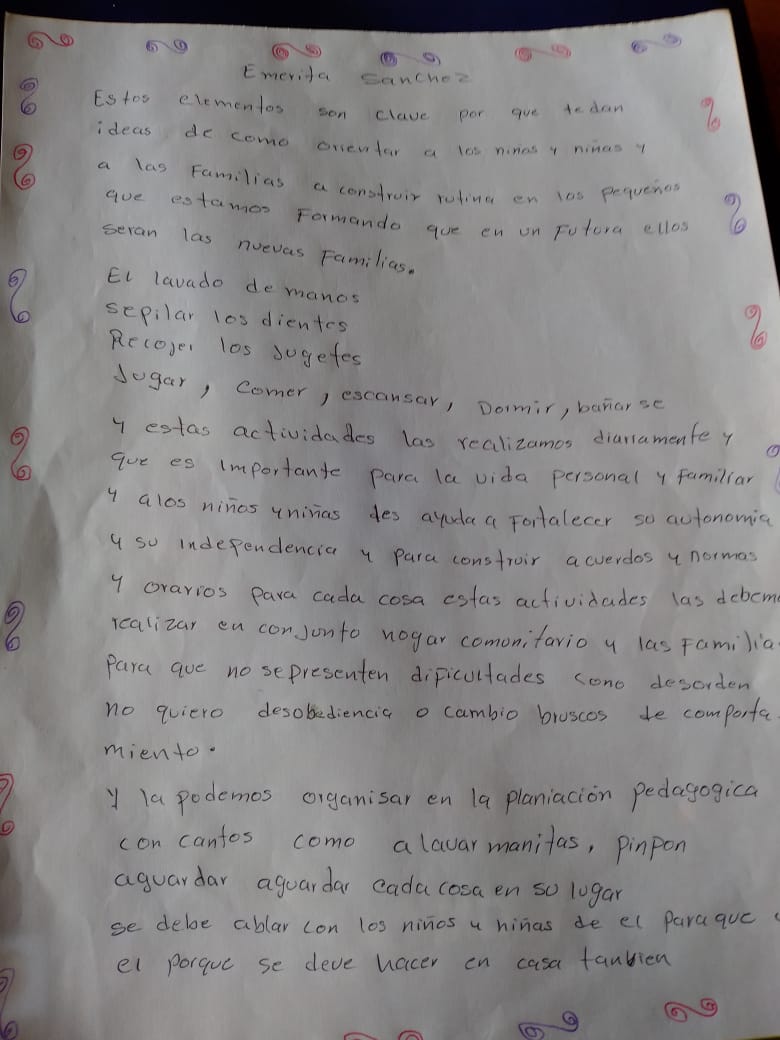 Emerita Sanchez
Estos elementos son clave por que te dan
ideas de como orientar a los niños y niñas y
a las Familias a construir rutina en los pequeños
que estamos Formando que en un Futura ellos
seran las nuevas Familias.
El lavado de manos
sepilar los dientes
Recojer los Jugetes
Jugar, comer, escansar, Dormir, bañar se
y estas actividades las realizamos diariamente y
que es importante para la vida personal y familiar
y alos niños yniñas les ayuda a Fortalecer su autonomia
y su independencia y para construir acuerdos y normas
y orarios para cada cosa estas actividades las debem
realizar en conjunto hogar comonitario y las Familia
para que no sepresenten dificultades como desorden
no quiero desobediencia o cambio bruscos de comporta
miento.
Y la podemos organisar en la planiación pedagogica
con cantos como a lavar manitas, pinpon
aguardar aguardar cada cosa en su lugar
se debe ablar con los niños y niñas de el para que
el porque se deve hacer en casa tanbien